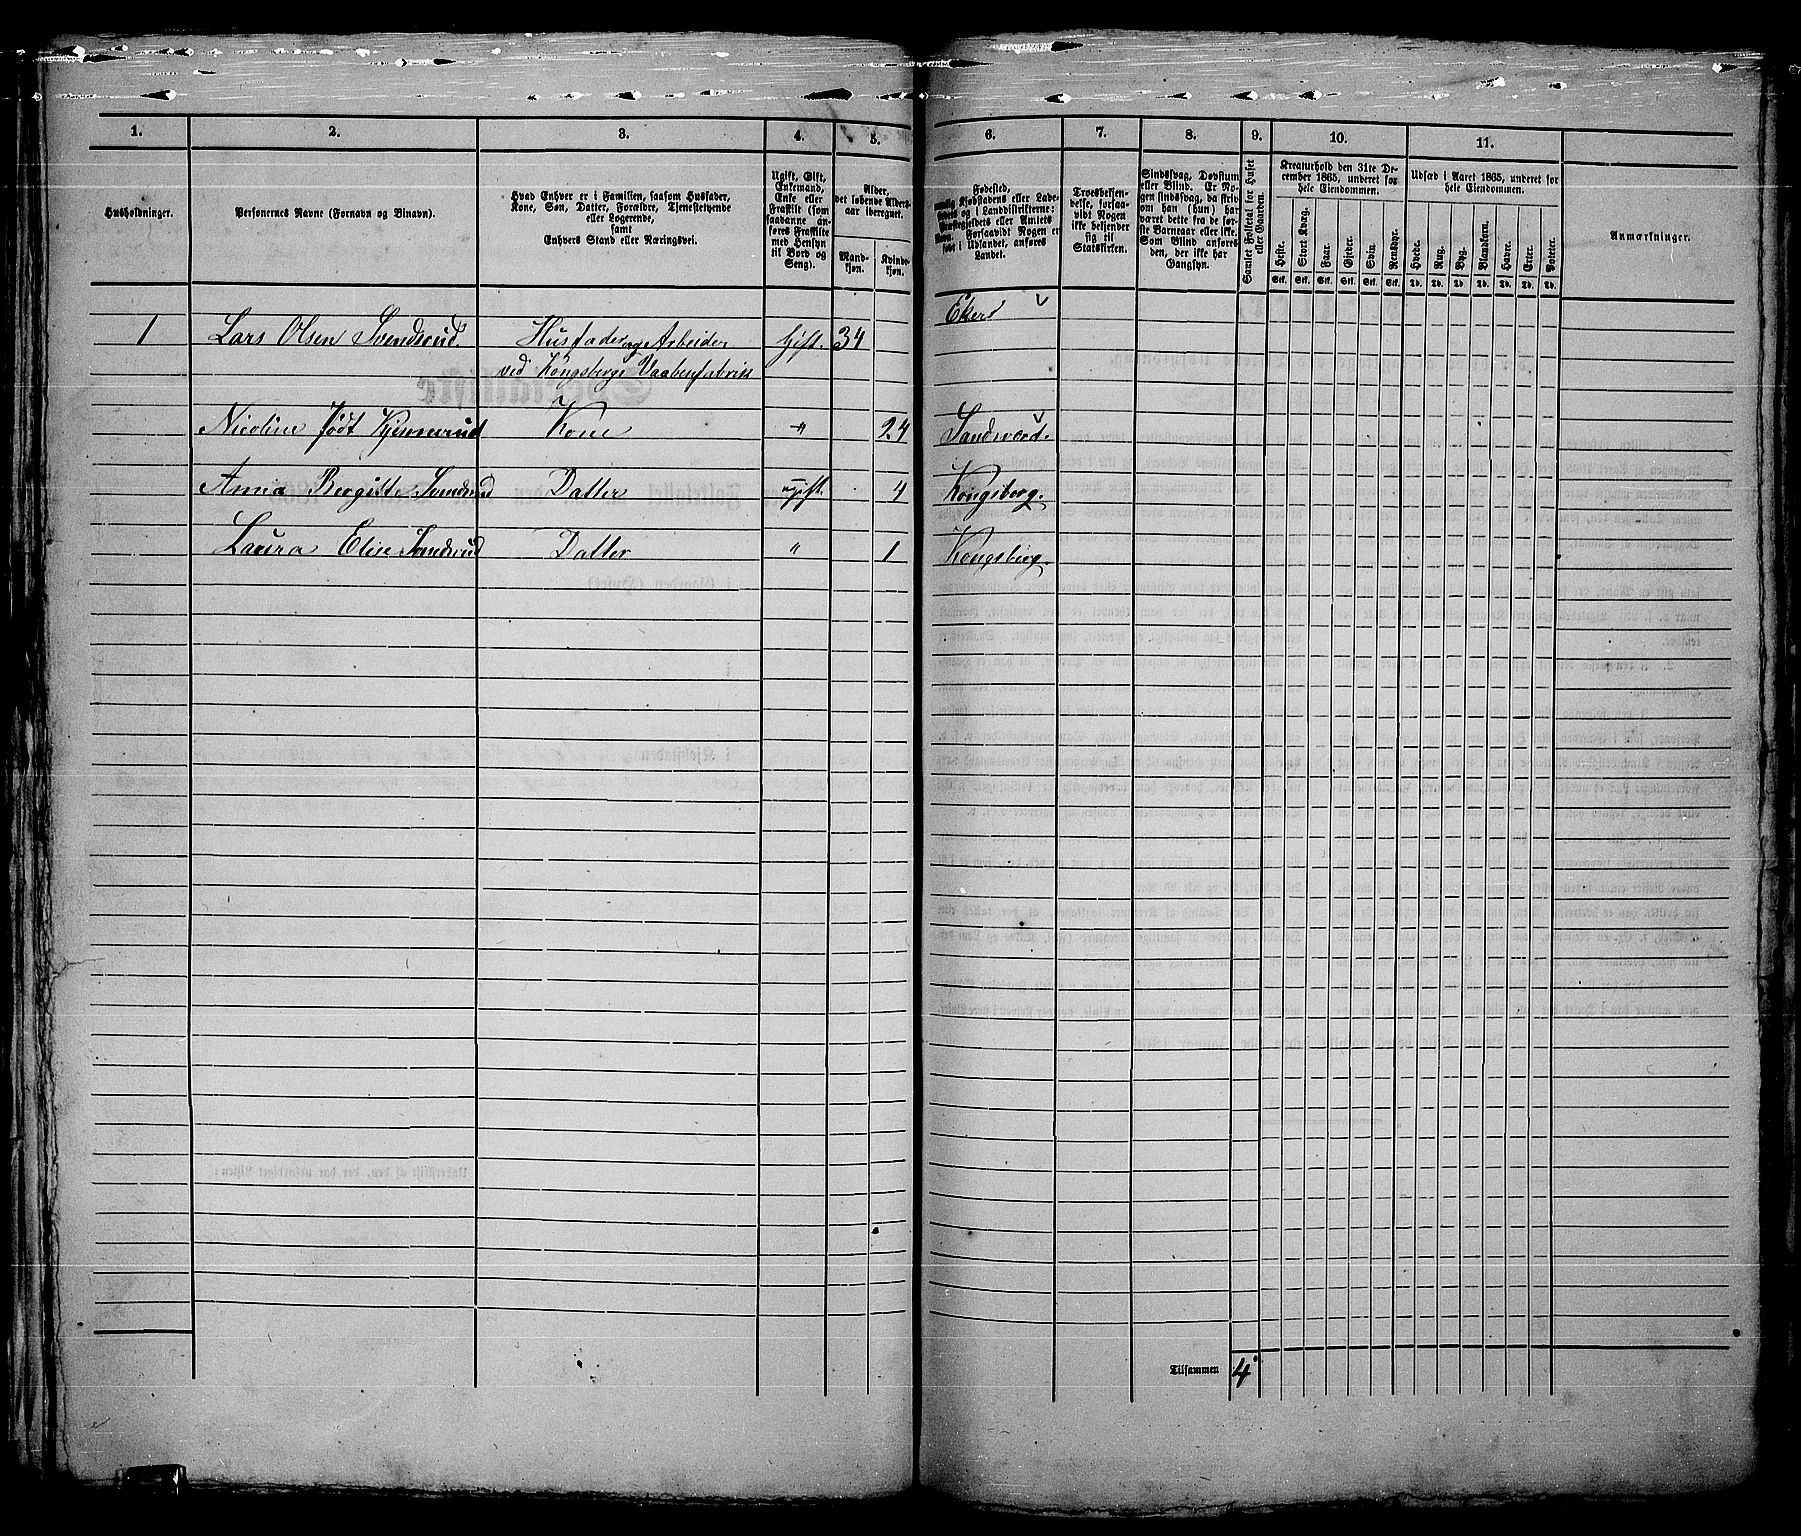 1.
2.
3.
4.
5.
6.
7.
8.
9.
10.
11.
Husholdninger.
Personernes Navne (Fornavn og Binavn).
Hvad Enhver er i Familien, saasom Husfader,
Kone, Søn, Datter, Forældre, Tjenestetyende
eller Logerende,
samt
Enhvers Stand eller Næringsvei.
Ugift, Gift,
Enkemand,
Enke eller
Fraskilt (som
saadanne an-
føres Fraskilte
med Hensyn
til Bord og
Seng).
Alder,
det løbende Alders-
aar iberegnet.
Mand-
kjøn.
Kvinde-
kjøn.
Fødested,
Landet.
Troesbekjen-
delse, forsaa-
vidt Nogen
ikke bekjender
sig til
Statskirken.
Sindssvag, Døvstum
eller Blind. Er No-
gen sindssvag, da skriv
om han (hun) har
været dette fra de før-
ste Barneaar eller ikke.
Som Blind anføres
den, der ikke har
Gangsyn.
Samlet Folketal for Huset
eller Gaarden.
Kreaturhold den 31te De-
cember 1865, underet for
hele Eiendommen.
Heste.
Stort Kvæg.
Faar.
Gjeder.
Svin.
Rensdyr.
Stk. Stk. Stk. Stk. Stk. Stk.
Udsæd i Aaret 1865, underet for
hele Eiendommen.
Hvede.
Rug.
Byg.
Blandkorn.
Havre.
Erter.
Poteter.
Td. Td. Td. Td. Td. Td. Td.
Anmærkninger.
1 Lars Olsen Svendsrud. Husfader og Arbeider Gift. 34 Eker
ved Kongsbergs Vaabenfabrik
Nicoline født Kjennerud Kone " 24 Sandsværd.
Anna Bergitte Svendsrud Datter ugift. 4 Kongsberg.
Laura Elise Svendsrud Datter " 1 Kongsberg.
Tilsammen 4